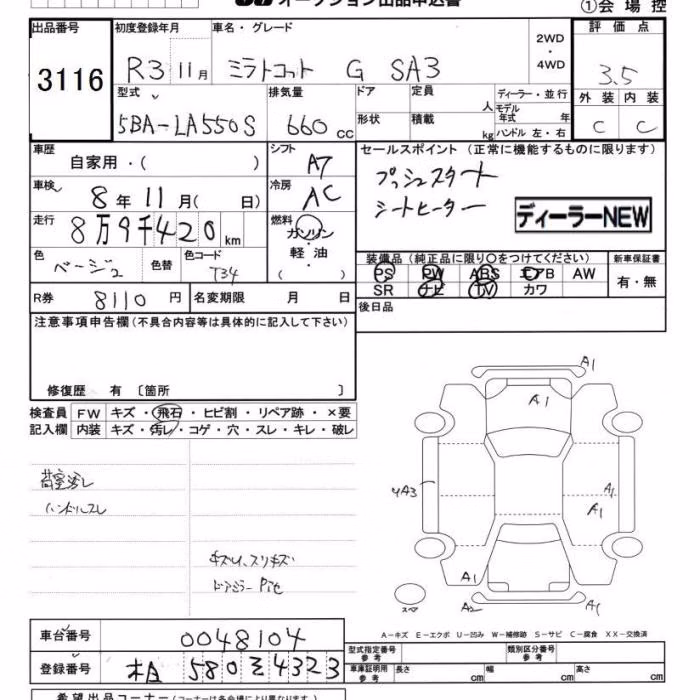 オークション出品申込書
①会場控
出品番号 3116
初度登録年月 R3 11月
車名・グレード ミラトコット G SA3
2WD・4WD
評価点 3.5
外装 C 内装 C
型式 5BA-LA550S
排気量 660 cc
ドア 形状
定員 人
積載 kg
ディーラー・並行
モデル年式 年
ハンドル 左・右
車歴 自家用・( )
シフト A7
セールスポイント (正常に機能するものに限ります)
プッシュスタート
シートヒーター
ディーラーNEW
車検 8年11月( 日)
冷房 AC
走行 8万9千420km
燃料 ガソリン・軽油・( )
色 ベージュ 色替 色コード T34
装備品 (純正品に限り○をつけてください)
PS PW ABS エアB AW
SR ナビ TV カワ
新車保証書 有・無
R券 8110円 名変期限 月 日
後日品
注意事項申告欄(不具合内容等は具体的に記入して下さい)
修復歴 有 〔箇所 〕
検査員記入欄
FW キズ・飛石・ヒビ割・リペア跡・×要
内装 キズ・汚レ・コゲ・穴・スレ・キレ・破レ
荷室汚レ
ハンドルスレ
キズU、スリキズ
ドアミラー
A1
A1
YA3
A1
A1
A1
A1
A2
A1
スペア
A-キズ E-エクボ U-凹み W-補修跡 S-サビ C-腐食 XX-交換済
車台番号 0048104
登録番号 580 4323
型式指定番号 参考
類別区分番号 参考
車庫証明用 参考 長さ cm 幅 cm 高さ cm
希望出品コーナー(コーナーは各会場により異なります)